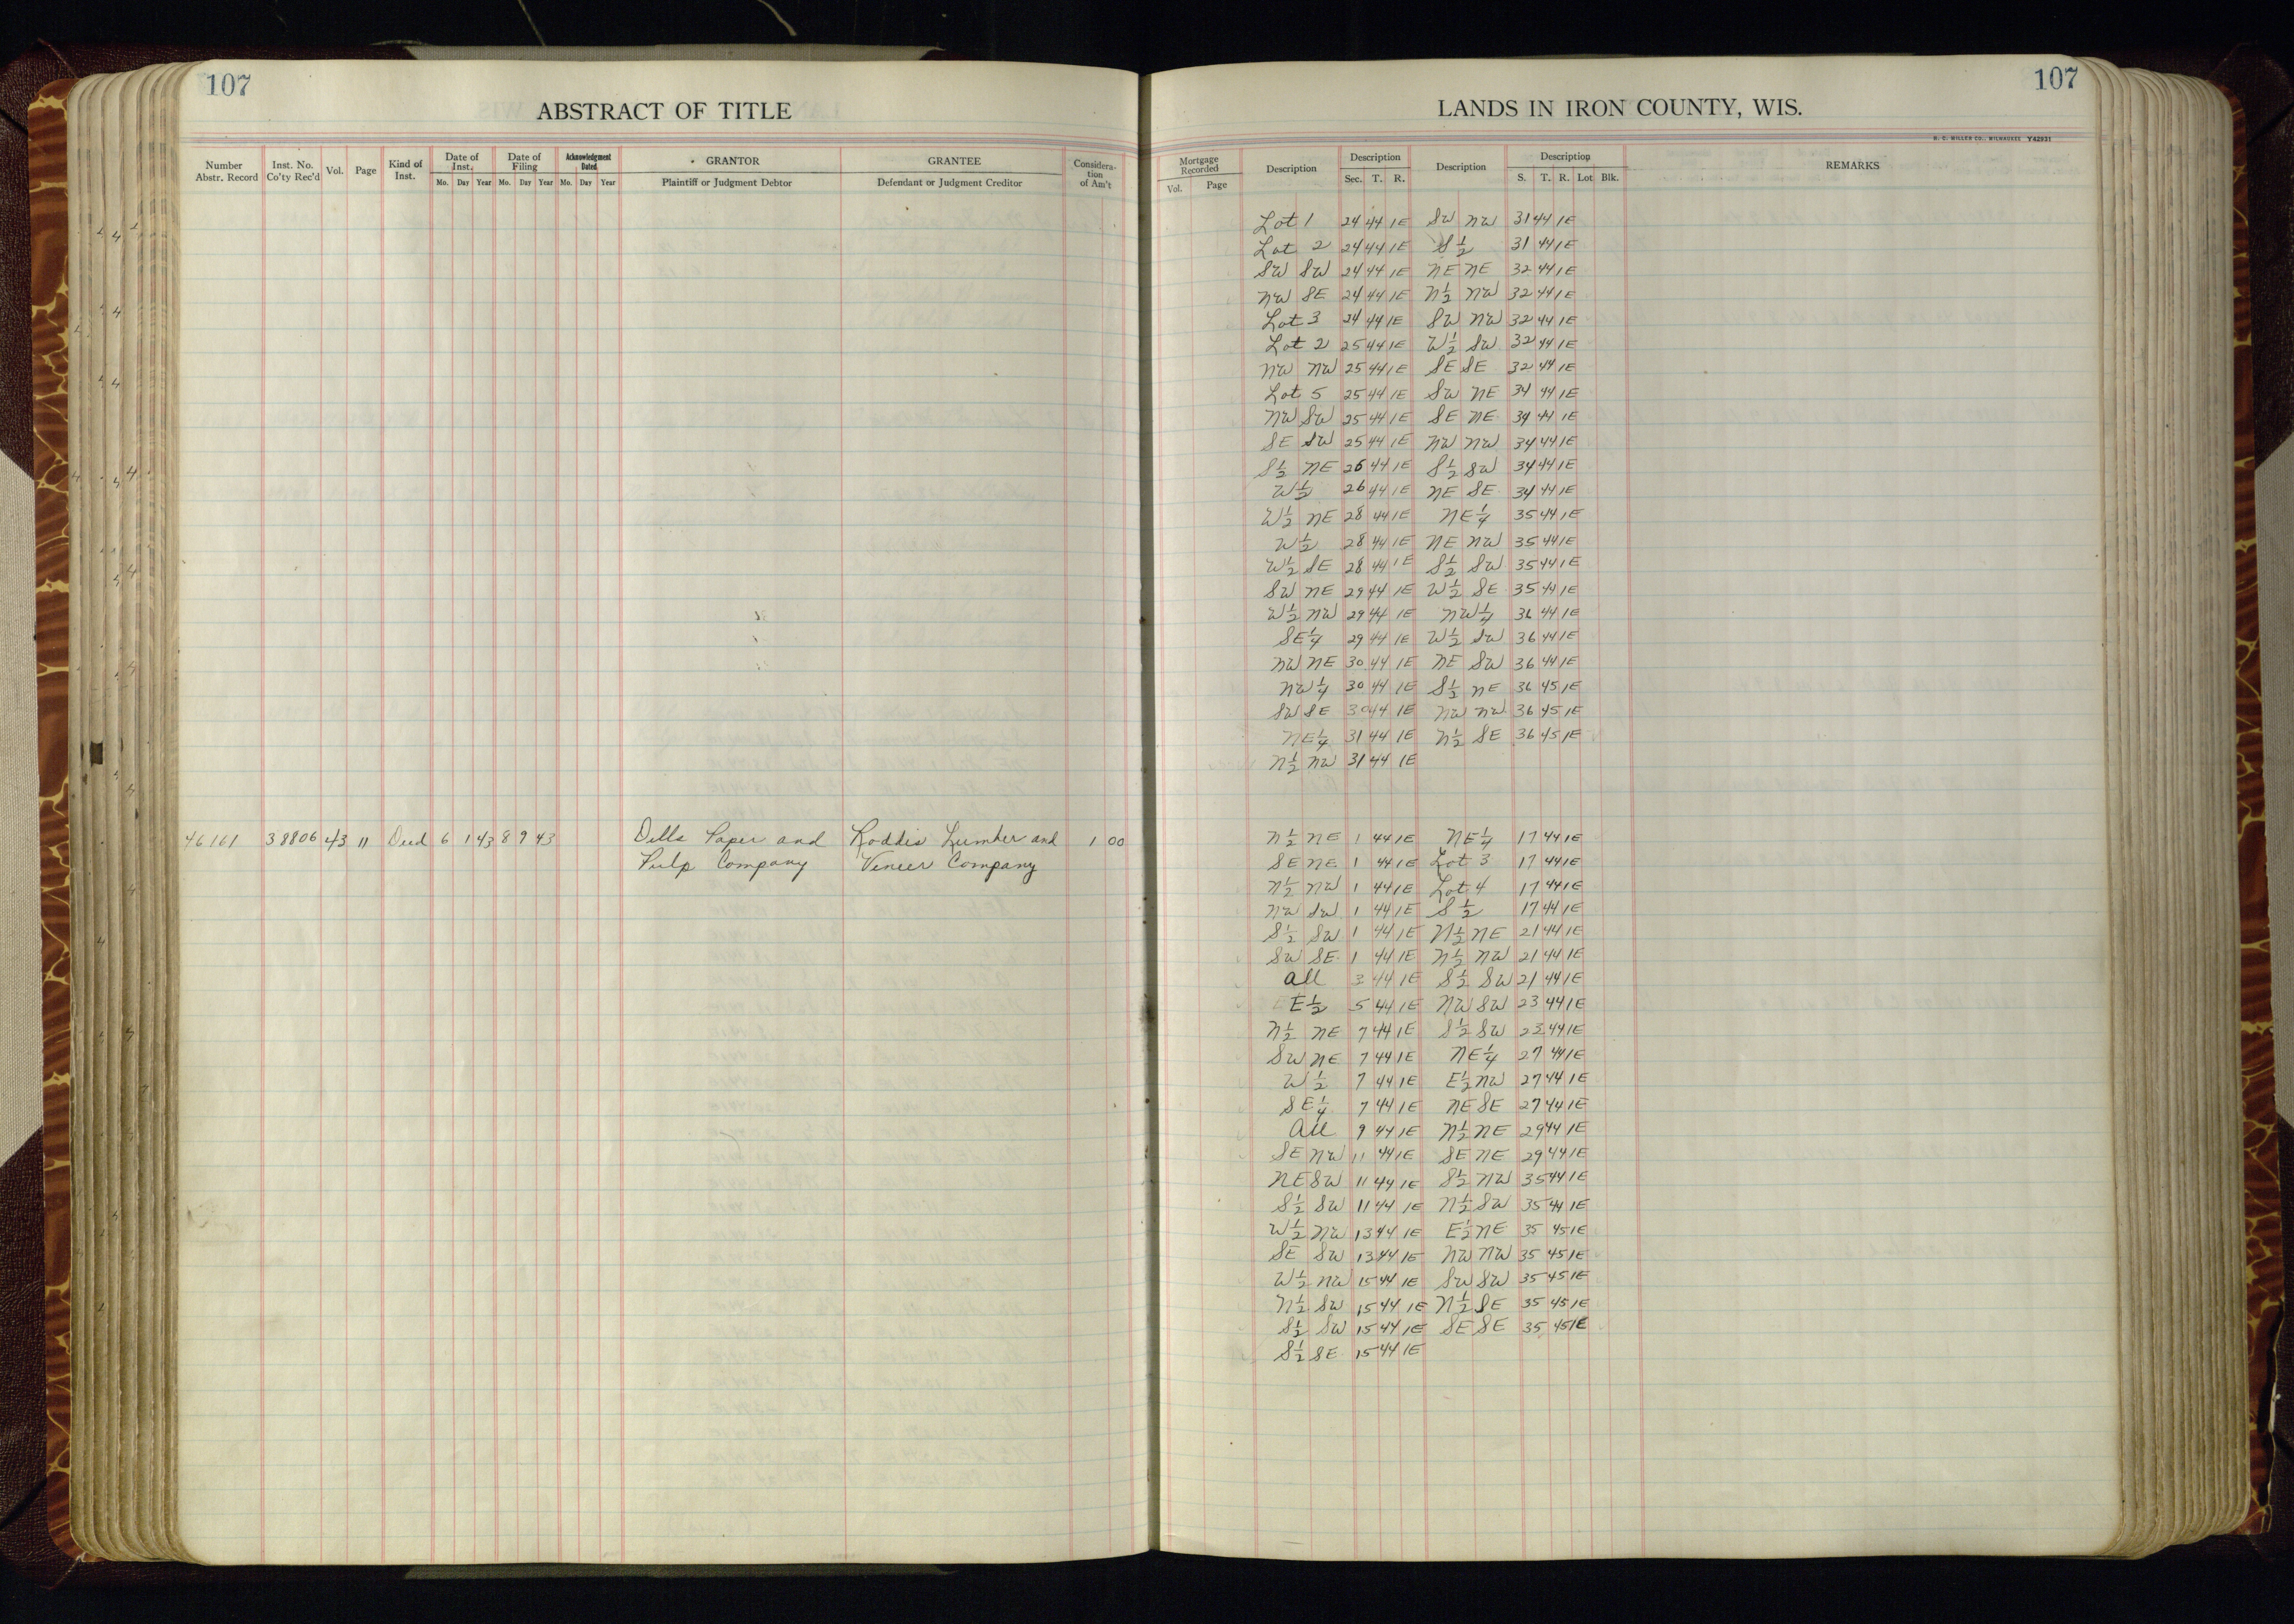 107
ABSTRACT OF TITLE
Number Abstr. Record | Inst. No. Co'ty Rec'd | Vol. | Page | Kind of Inst. | Date of Inst. Mo. Day Year | Date of Filing Mo. Day Year | Acknowledgment Dated Mo. Day Year | GRANTOR Plaintiff or Judgment Debtor | GRANTEE Defendant or Judgment Creditor | Consideration of Am't
46161 38806 43 11 Deed 6 1 43 8 9 43 Dells Paper and Roddis Lumber and 1 00
Pulp Company Veneer Company
107
LANDS IN IRON COUNTY, WIS.
H. C. MILLER CO., MILWAUKEE Y42931
Mortgage Recorded Vol. Page | Description | Description Sec. T. R. | Description | Description S. T. R. Lot Blk. | REMARKS
Lot 1 24 44 1E SW NW 31 44 1E
Lot 2 24 44 1E S½ 31 44 1E
SW SW 24 44 1E NE NE 32 44 1E
NW SE 24 44 1E N½ NW 32 44 1E
Lot 3 24 44 1E SW NW 32 44 1E
Lot 2 25 44 1E W½ SW 32 44 1E
NW NW 25 44 1E SE SE 32 44 1E
Lot 5 25 44 1E SW NE 34 44 1E
NW SW 25 44 1E SE NE 34 44 1E
SE SW 25 44 1E NW NW 34 44 1E
S½ NE 26 44 1E S½ SW 34 44 1E
W½ 26 44 1E NE SE 34 44 1E
W½ NE 28 44 1E NE¼ 35 44 1E
W½ 28 44 1E NE NW 35 44 1E
W½ SE 28 44 1E S½ SW 35 44 1E
SW NE 29 44 1E W½ SE 35 44 1E
W½ NW 29 44 1E NW¼ 36 44 1E
SE¼ 29 44 1E W½ SW 36 44 1E
NW NE 30 44 1E NE SW 36 44 1E
NW¼ 30 44 1E S½ NE 36 45 1E
SW SE 30 44 1E NW NW 36 45 1E
NE¼ 31 44 1E N½ SE 36 45 1E
N½ NW 31 44 1E
N½ NE 1 44 1E NE¼ 17 44 1E
SE NE 1 44 1E Lot 3 17 44 1E
N½ NW 1 44 1E Lot 4 17 44 1E
NW SW 1 44 1E S½ 17 44 1E
S½ SW 1 44 1E N½ NE 21 44 1E
SW SE 1 44 1E N½ NW 21 44 1E
All 3 44 1E S½ SW 21 44 1E
E½ 5 44 1E NW SW 23 44 1E
N½ NE 7 44 1E S½ SW 23 44 1E
SW NE 7 44 1E NE¼ 27 44 1E
W½ 7 44 1E E½ NW 27 44 1E
SE¼ 7 44 1E NE SE 27 44 1E
All 9 44 1E N½ NE 29 44 1E
SE NW 11 44 1E SE NE 29 44 1E
NE SW 11 44 1E S½ NW 35 44 1E
S½ SW 11 44 1E N½ SW 35 44 1E
W½ NW 13 44 1E E½ NE 35 45 1E
SE SW 13 44 1E NW NW 35 45 1E
W½ NW 15 44 1E SW SW 35 45 1E
N½ SW 15 44 1E N½ SE 35 45 1E
S½ SW 15 44 1E SE SE 35 45 1E
S½ SE 15 44 1E